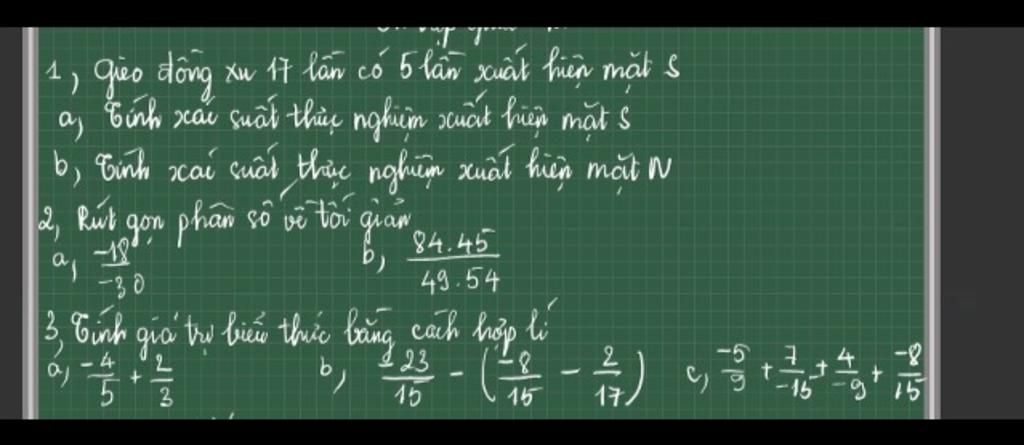 1, Gieo đồng xu 17 lần có 5 lần xuất hiện mặt S
a, Tính xác suất thực nghiệm xuất hiện mặt S
b, Tính xác suất thực nghiệm xuất hiện mặt N
2, Rút gọn phân số về tối giản
a, -18/-30 b, 84.45/49.54
3, Tính giá trị biểu thức bằng cách hợp lí
a, -4/5 + 2/3 b, -23/15 - (-8/15 - 2/17) c, -5/9 + 7/-15 + 4/-9 + -8/15